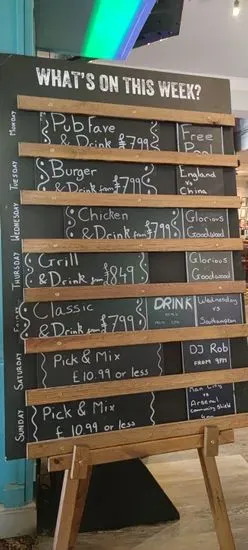 WHAT'S ON THIS WEEK?
MONDAY
Pub Fave
& Drink £7.99
Free
Pool
TUESDAY
Burger
& Drink from £7.99
England
vs
China
WEDNESDAY
Chicken
& Drink from £7.99
Glorious
Goodwood
THURSDAY
Grill
& Drink from £8.49
Glorious
Goodwood
Classic
& Drink from £7.99
DRINK
Wednesday
vs
Southampton
SATURDAY
Pick & Mix
£10.99 or less
DJ Rob
FROM 9PM
SUNDAY
Pick & Mix
£10.99 or less
Man City
vs
Arsenal
Community Shield
4pm